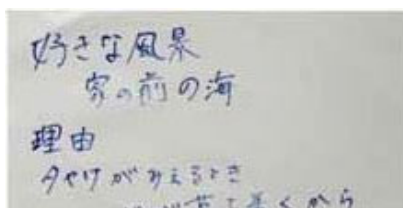 好きな風景
家の前の海
理由
夕やけがみえるとき